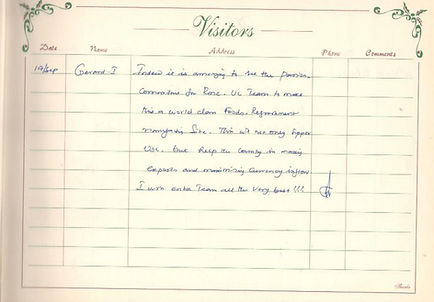 Visitors
Date Name Address Phone Comments
19/Sep Gerard I Indeed it is amazing to see the passion
Commitment for Rose. Vc Team to make
this a world class Foods. Refreshment
manufacturing Site. This will not only
USL. But help the Country in making
exports and minimising Currency inflow
I wish entire Team all the very best !!!